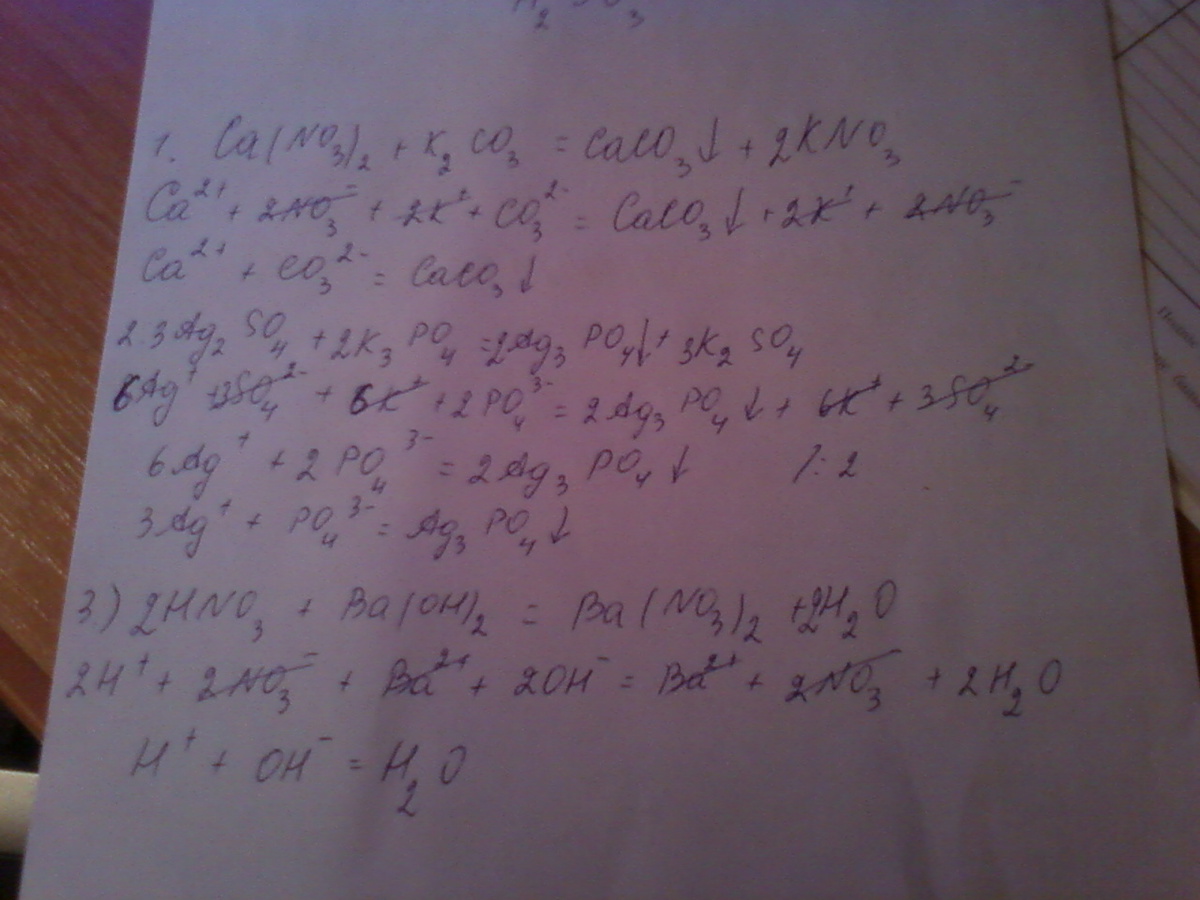 H₂SO₃
1. Ca(NO₃)₂ + K₂CO₃ = CaCO₃↓ + 2KNO₃
Ca²⁺ + 2NO₃⁻ + 2K⁺ + CO₃²⁻ = CaCO₃↓ + 2K⁺ + 2NO₃⁻
Ca²⁺ + CO₃²⁻ = CaCO₃↓
2. 3Ag₂SO₄ + 2K₃PO₄ = 2Ag₃PO₄↓ + 3K₂SO₄
6Ag⁺ + 3SO₄²⁻ + 6K⁺ + 2PO₄³⁻ = 2Ag₃PO₄↓ + 6K⁺ + 3SO₄²⁻
6Ag⁺ + 2PO₄³⁻ = 2Ag₃PO₄↓ /:2
3Ag⁺ + PO₄³⁻ = Ag₃PO₄↓
3) 2HNO₃ + Ba(OH)₂ = Ba(NO₃)₂ + 2H₂O
2H⁺ + 2NO₃⁻ + Ba²⁺ + 2OH⁻ = Ba²⁺ + 2NO₃⁻ + 2H₂O
H⁺ + OH⁻ = H₂O